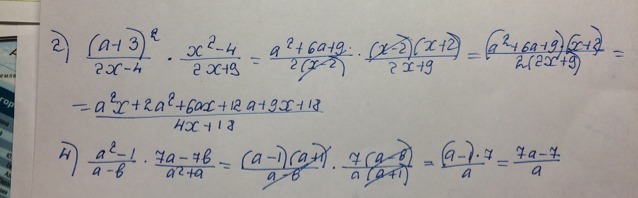 2) (a+3)²/(2x-4) · (x²-4)/(2x+9) = (a²+6a+9)/(2(x-2)) · ((x-2)(x+2))/(2x+9) = ((a²+6a+9)·(x+2))/(2(2x+9)) =
= (a²x+2a²+6ax+12a+9x+18)/(4x+18)
4) (a²-1)/(a-в) · (7a-7в)/(a²+a) = ((a-1)(a+1))/(a-в) · (7(a-в))/(a(a+1)) = ((a-1)·7)/a = (7a-7)/a